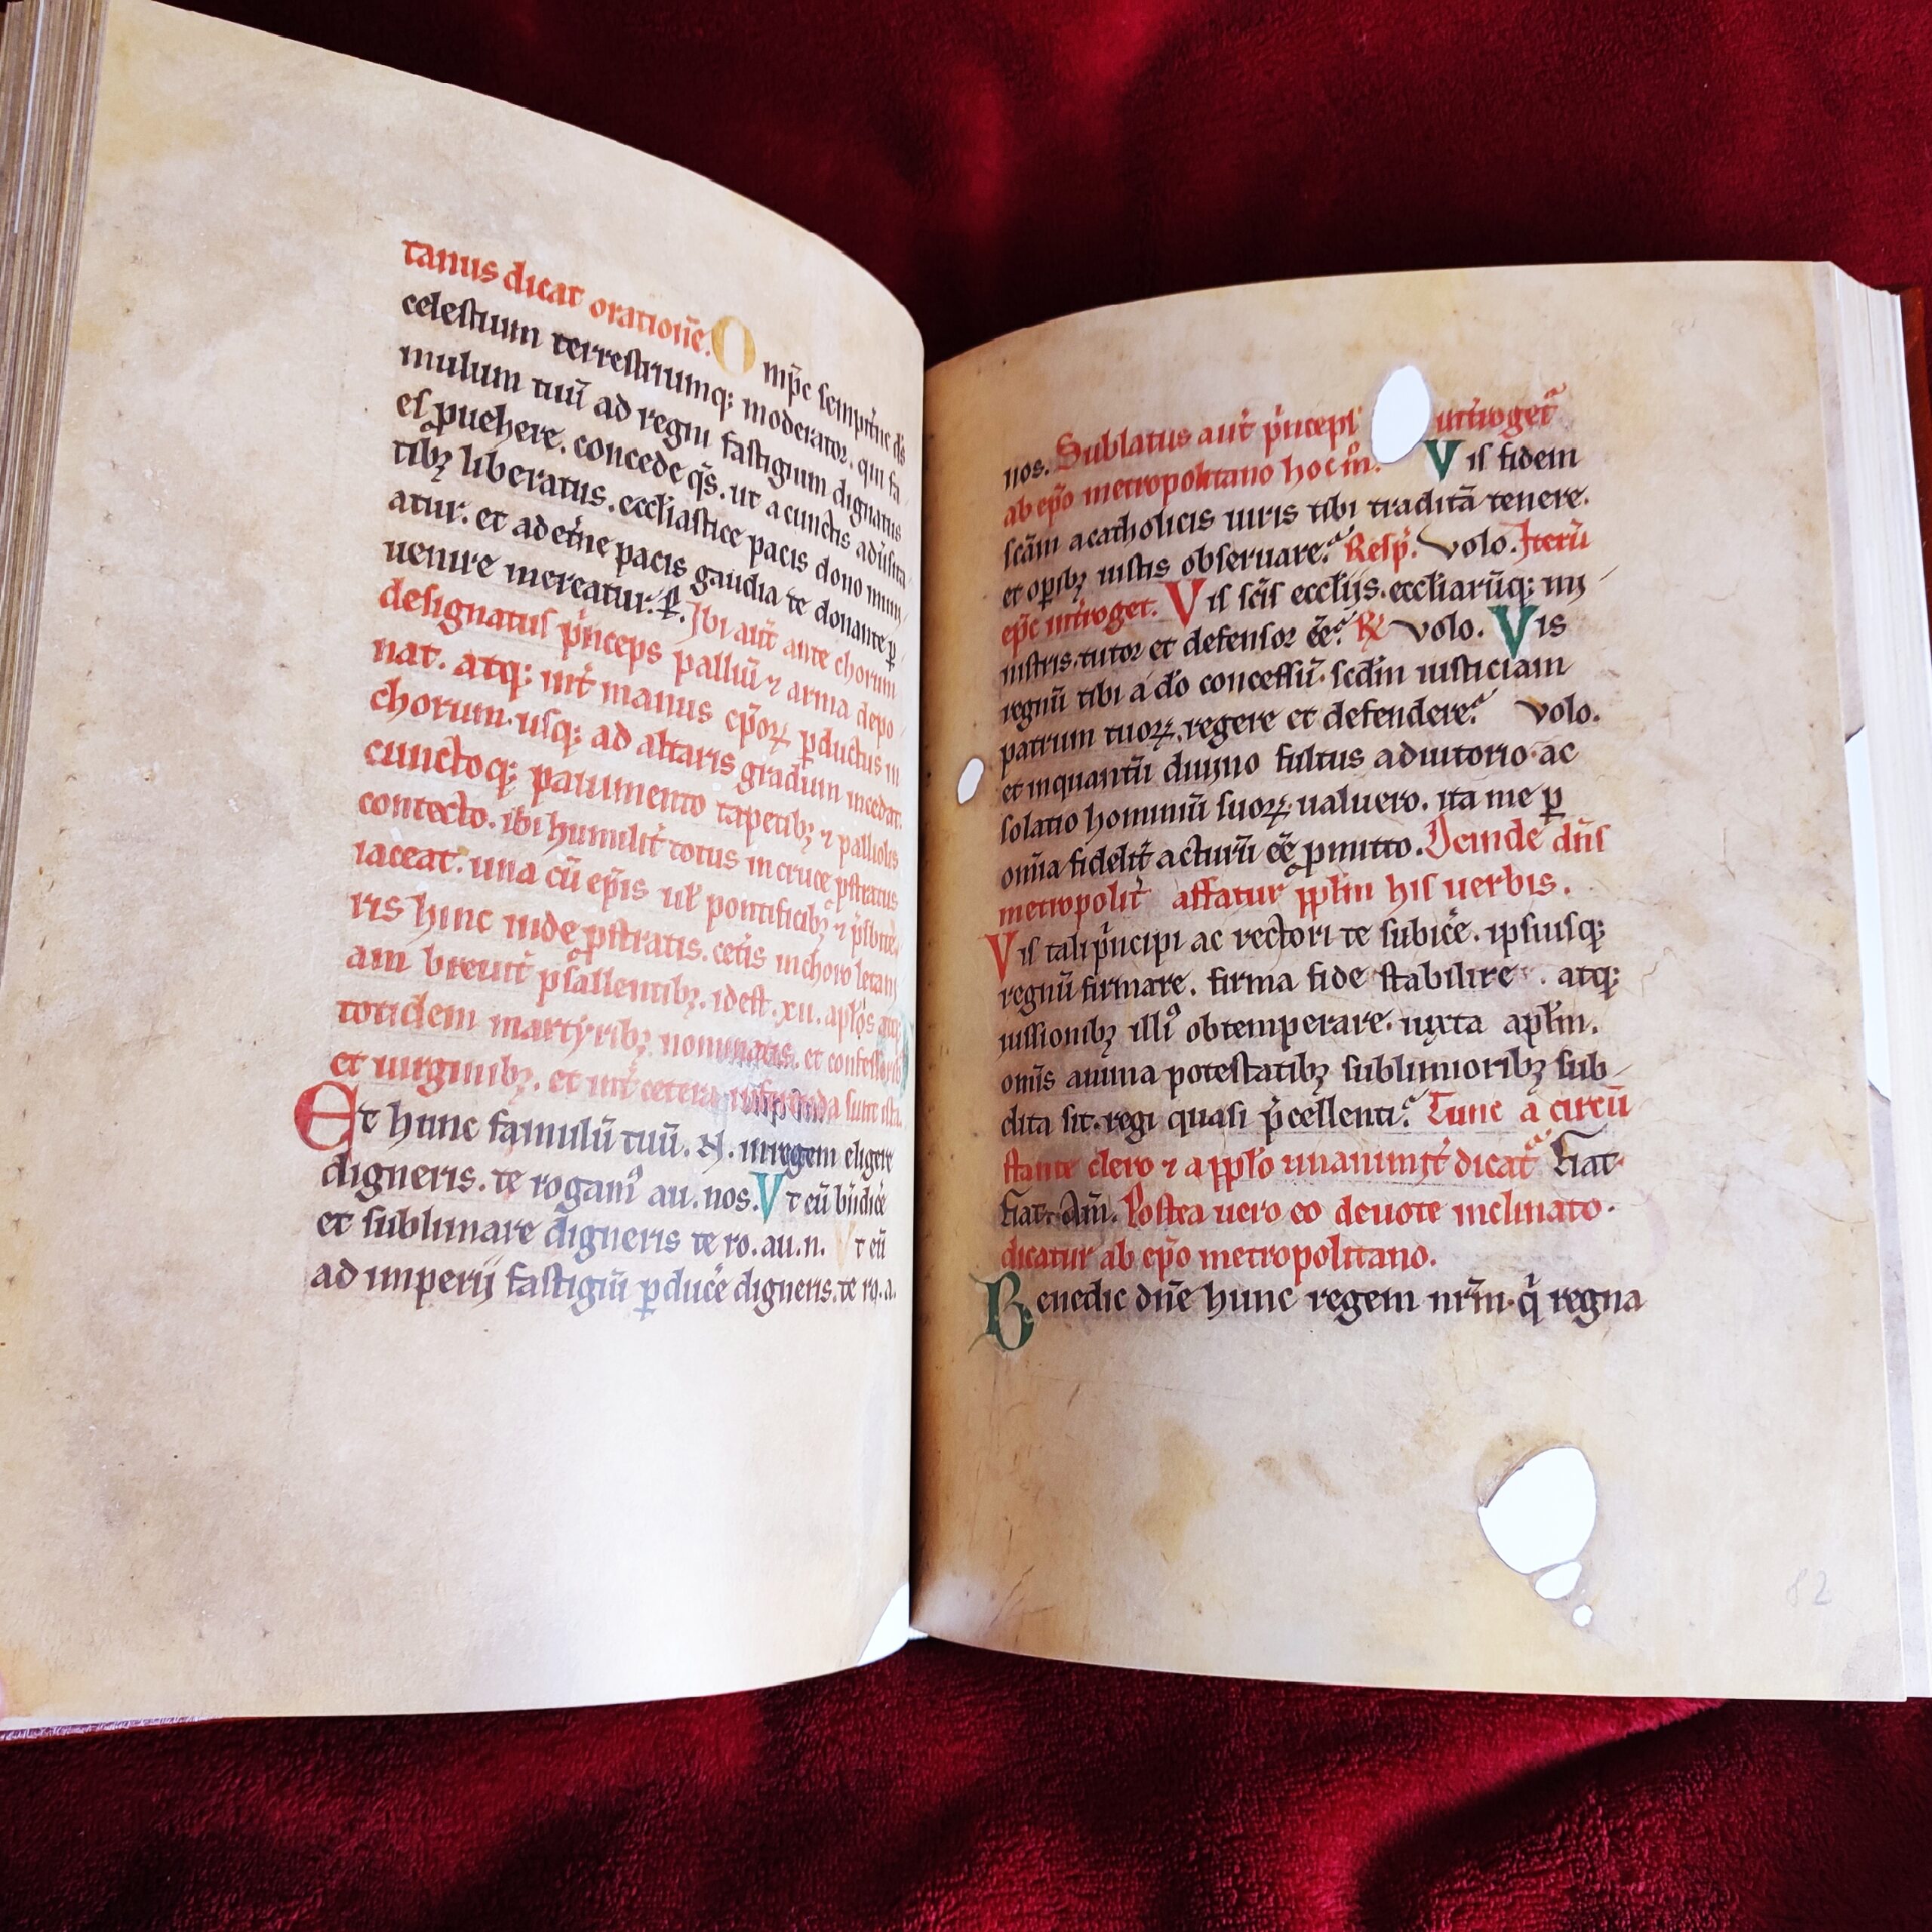 tanus dicat orationē. O mp̄c sempit̄ne ds̄
celestium terrestriumq; moderator. qui fa
mulum tuū ad regni fastigium dignatus
es ꝓuehere. concede q̄s. ut a cunctis
tibꝫ liberatus. eccl̄iastice pacis dono muni
atur. et ad et̄ne pacis gaudia te donante ꝑ
uenire mereatur. ꝑ. Ibi aut̄ ante chorum
designatus p̄nceps palliū ⁊ arma depo
nat. atq; int̄ manus ep̄oꝝ ꝑductus in
chorum. usq; ad altaris gradum incedat.
cunctoq; pauimento tapetibꝫ ⁊ palliolis
contecto. ibi humilit̄ totus in cruce pstratus
iaceat. una cū ep̄is ul̄ pontificibꝫ ⁊ p̄sbite
ris hinc inde ꝓstratis. cet̄is in choro letani
am breuit̄ psallentibꝫ. id est. xii. apl̄os atq;
totidem martyribꝫ nominatis. et confessoribꝫ
et uirginibꝫ. et int̄ cetera inferenda sunt ista.
Et hunc famulū tuū. N. in regem eligere
digneris. te rogam᷒ au. nos. Vt eū bn̄dicē
et sublimare digneris te ro. au. n. Vt eū
ad imperij fastigiū ꝑducē digneris. te ro. a.
nos. Sublatus aut̄ p̄nceps int̄roget᷑
ab ep̄o metropolitano hoc m̊. Vis fidem
scām a catholicis uiris tibi traditā tenere.
et opibꝫ iustis obseruare? Resp̄. Volo. Iterū
ep̄c int̄roget. Vis scīs eccl̄ijs. eccl̄iarūq; mi
nistris. tutor et defensor ēe? ℟ Volo. Vis
regnū tibi a dō concessū. scd̄m iusticiam
patrum tuoꝝ. regere et defendere? Volo.
et inquantū diuino fultus adiutorio. ac
solatio hominū suoꝝ ualuero. ita me ꝑ
omīa fidelit̄ acturū ēe ꝓmitto. Deinde dn̄s
metropolit̄ affatur ppl̄m his uerbis.
Vis tali p̄ncipi ac rectori te subicē. ipsiusq;
regnū firmare. firma fide stabilire. atq;
iussionibꝫ illi᷒ obtemperare. iuxta apl̄m.
omīs anima potestatibꝫ sublimioribꝫ sub
dita sit. regi quasi p̄cellenti? Tunc a circū
stante clero ⁊ a ppl̄o unanimit̄ dicat᷑ Fiat
fiat. Am̄. Postea uero eo deuote inclinato.
dicatur ab ep̄o metropolitano.
Benedic dn̄e hunc regem nr̄m. q̄ regna
82